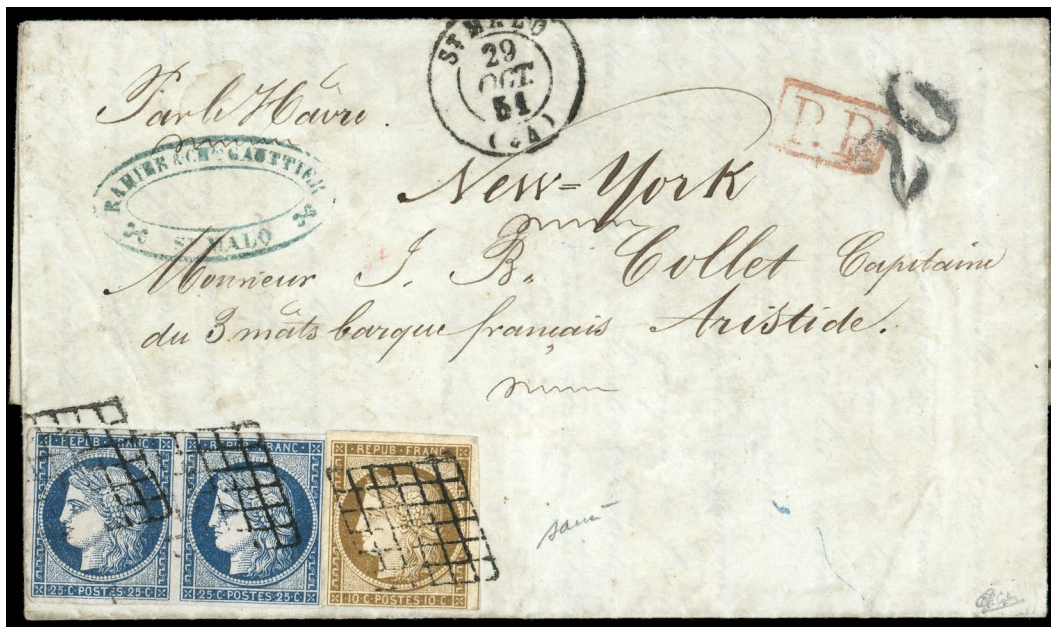 St MALO
29
OCT.
51
(34)
Par le Hâvre.
P.P.
20
GAUTTIER
St MALO
New=York
Monsieur J. B. Collet Capitaine
du 3 mâts barque français Aristide.
REPUB·FRANC· REPUB·FRANC· REPUB·FRANC·
25·C·POSTES·25·C· 25·C·POSTES·25·C· 10·C·POSTES·10·C·